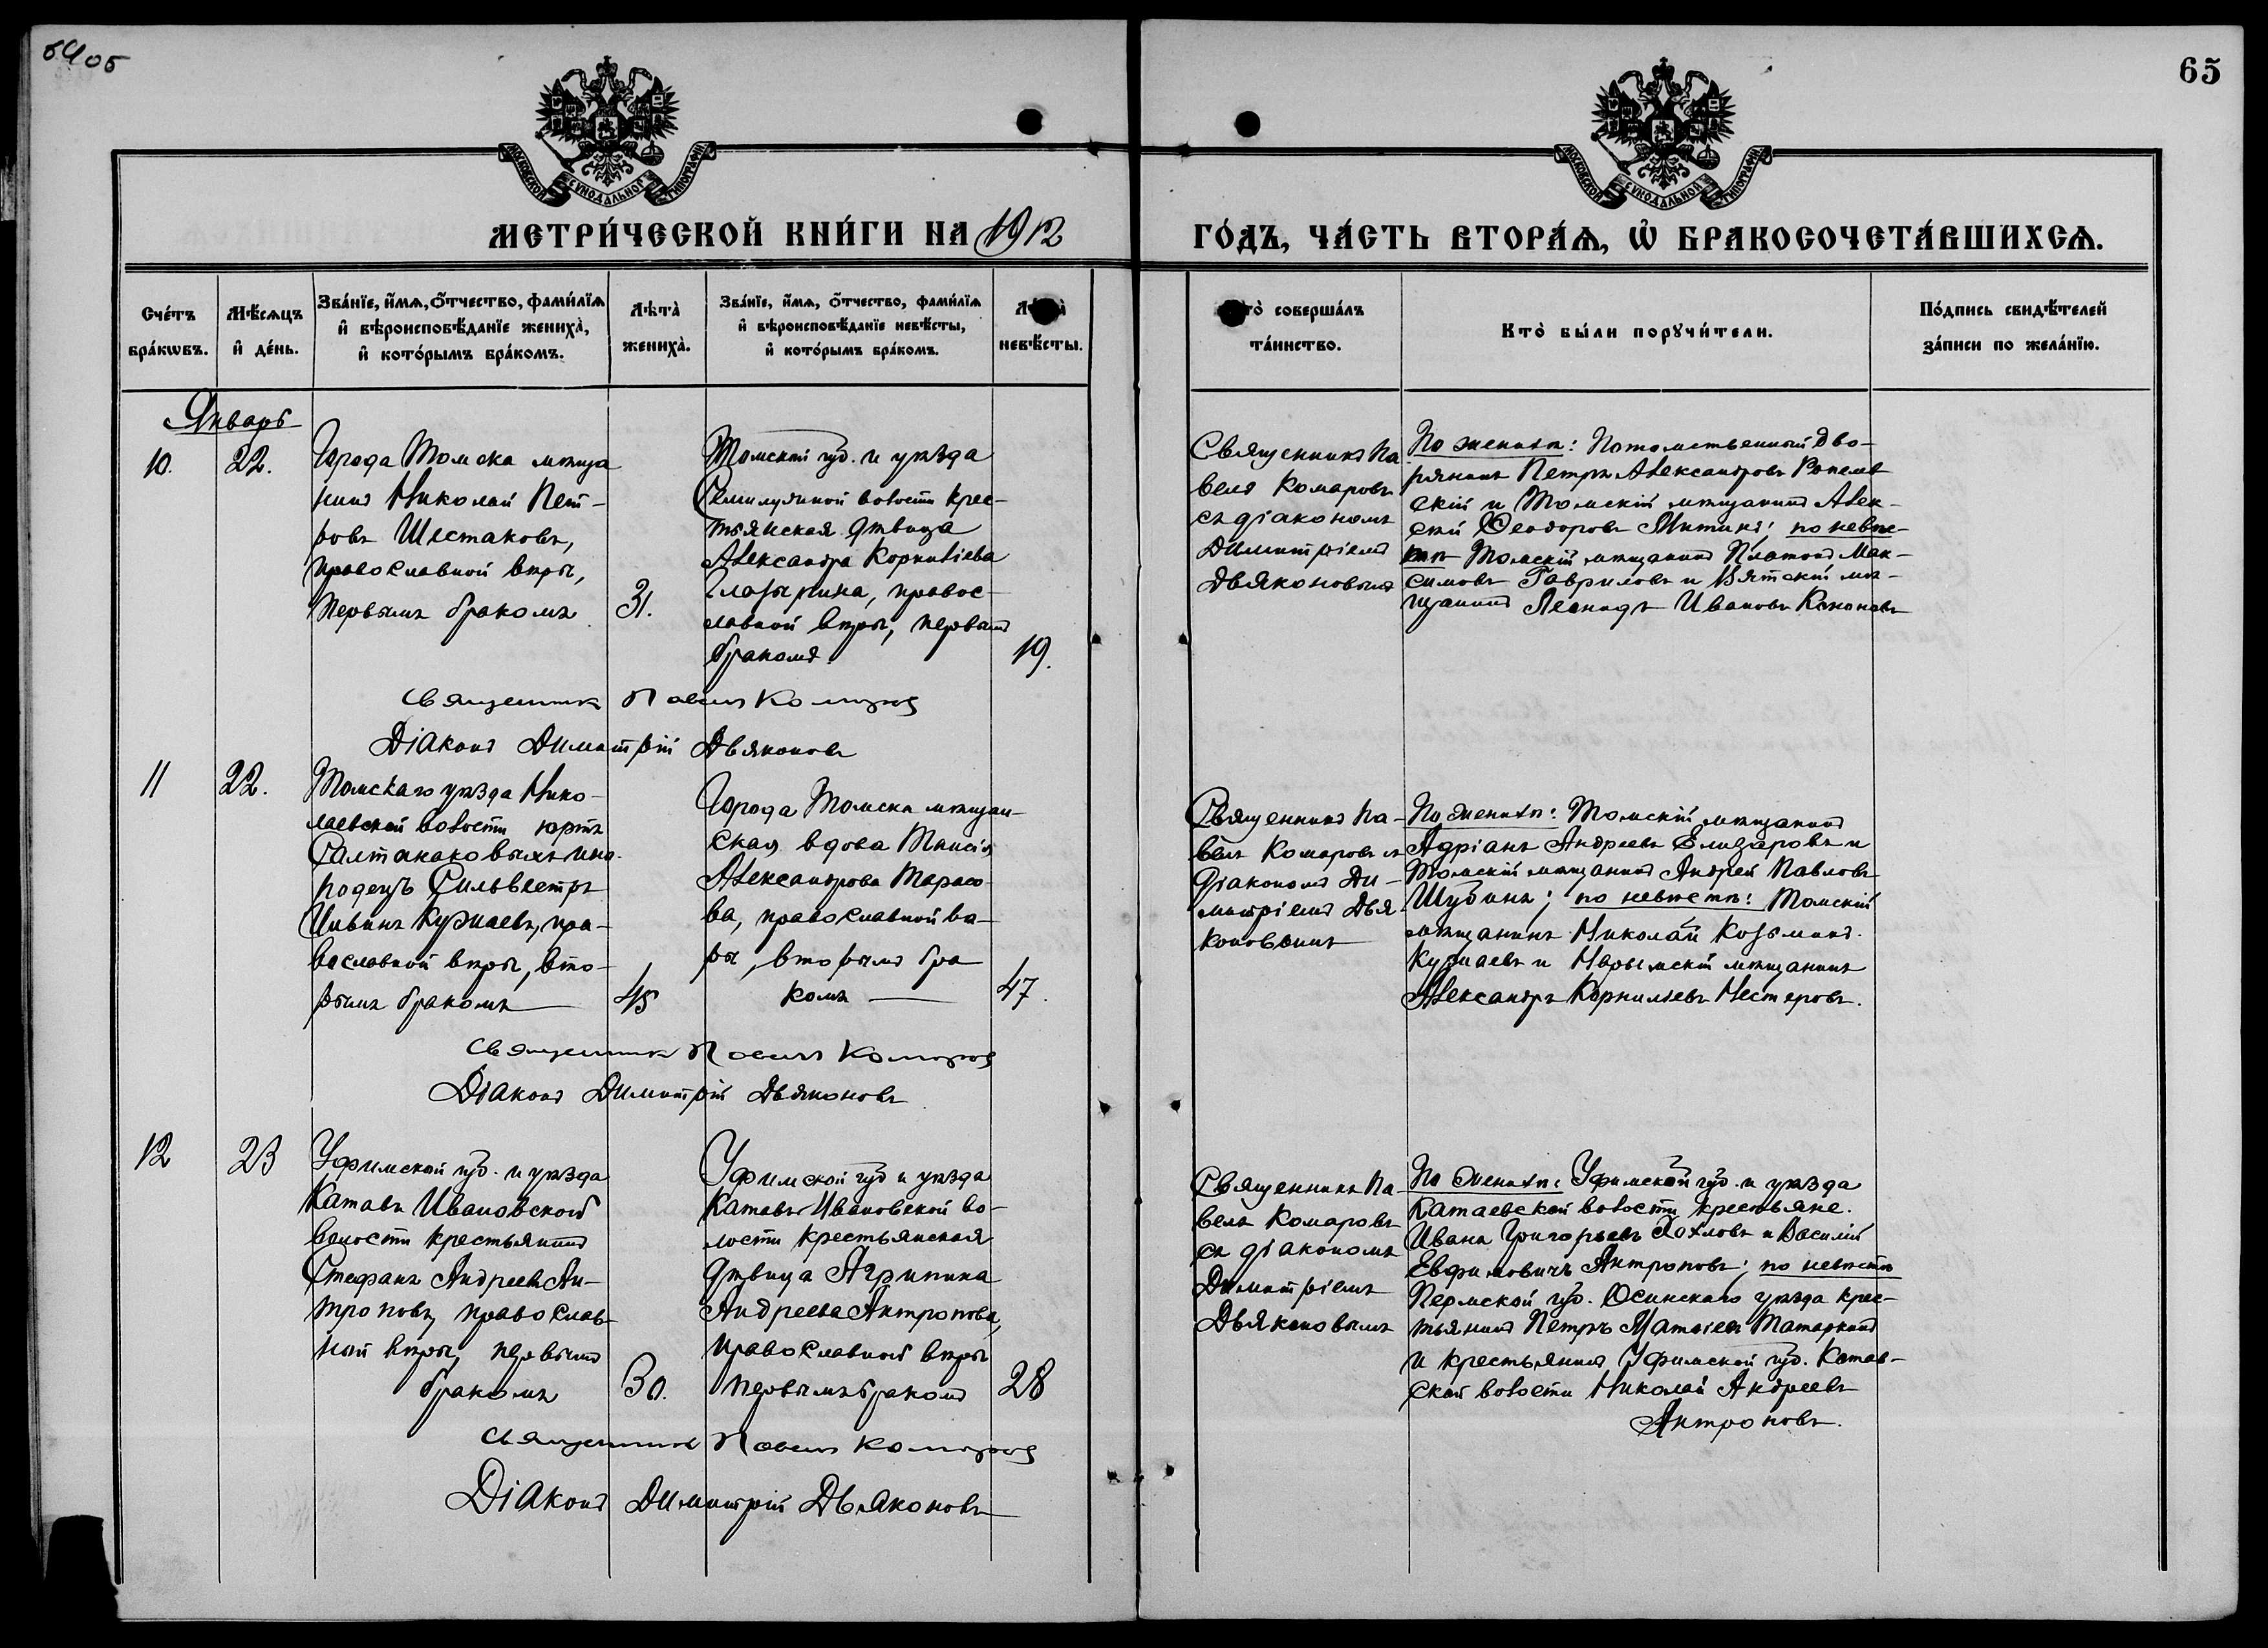 64 об
65
МОСКОВСКОЙ СѴНОДАЛЬНОЙ ТИПОГРАФІИ
МОСКОВСКОЙ СѴНОДАЛЬНОЙ ТИПОГРАФІИ
МЕТРИ́ЧЕСКОЙ КНИ́ГИ НА 1912
ГО́ДЪ, ЧА́СТЬ ВТОРА́Ѧ, Ѽ БРАКОСОЧЕТА́ВШИХСѦ.
Сче́тъ бра́кѡвъ.
Мѣ́сѧцъ и҆ де́нь.
Зва́нїе, и҆́мѧ, ѻ҆́тчество, фами́лїѧ
и҆ вѣроисповѣ́данїе жениха̀,
и҆ кото́рымъ бра́комъ.
Лѣта̀ жениха̀.
Зва́нїе, и҆́мѧ, ѻ҆́тчество, фами́лїѧ
и҆ вѣроисповѣ́данїе невѣ́сты,
и҆ кото́рымъ бра́комъ.
невѣ́сты.
совершáлъ
та́инство.
Кто̀ бы́ли порꙋчи́тели.
По́дпись свидѣ́телей
за́писи по жела́нїю.
Январь
10.
22.
Города Томска мѣща
нинъ Николай Пет-
ровъ Шестаковъ,
православной вѣры,
первымъ бракомъ
31.
Томской губ. и уѣзда
Семилужной волости крес-
тьянская дѣвица
Александра Корнилiева
Глазырина, правос-
лавной вѣры, первымъ
бракомъ.
19.
Священникъ Па
велъ Комаровъ
съ дiакономъ
Димитрiемъ
Дьяконовымъ
По женихѣ: Потомственный дво-
рянинъ Петръ Александровъ
скiй и Томскiй мѣщанинъ Алек-
сѣй Феодоровъ Митинъ; по невѣс-
тѣ Томскiй мѣщанинъ Платонъ Мак-
симовъ Гавриловъ и Вятскiй мѣ-
щанинъ Леонидъ Ивановъ Кононовъ
Священникъ Павелъ Комаровъ
Дiаконъ Димитрiй Дьяконовъ
11
22.
Томскаго уѣзда Нико-
лаевской волости юртъ
Салтанаковыхъ ино-
родецъ Сильвестръ
Ивинъ Куриаевъ, пра-
вославной вѣры, вто-
рымъ бракомъ
45
Города Томска мѣщан-
ская вдова Таисiя
Александрова Тарасо-
ва, православной вѣ-
ры, вторымъ бра
комъ
47.
Священникъ Па-
велъ Комаровъ съ
дiакономъ Ди-
митрiемъ Дья
коновымъ
По женихѣ: Томскiй мѣщанинъ
Адрiанъ Андреевъ Елизаровъ и
Томскiй мѣщанинъ Андрей Павловъ
Шубинъ; по невѣстѣ: Томскiй
мѣщанинъ Николай Козьминъ
Куриаевъ и Нарымскiй мѣщанинъ
Александръ Корнильевъ Нестеровъ.
Священникъ Павелъ Комаровъ
Дiаконъ Димитрiй Дьяконовъ
12
23
Уфимской губ. и уѣзда
Катавъ Ивановской
волости крестьянинъ
Стефанъ Андреевъ Ан-
троповъ, православ-
ной вѣры, первымъ
бракомъ
30.
Уфимской губ и уѣзда
Катавъ Ивановской во-
лости крестьянская
дѣвица Агрипина
Андреева Антропова,
православной вѣры
первымъ бракомъ
28
Священникъ Па-
велъ Комаровъ
съ дiакономъ
Димитрiемъ
Дьяконовымъ
По женихѣ: Уфимской губ. и уѣзда
Катаевской волости крестьяне
Иванъ Григорьевъ Хохловъ и Василiй
Евфимовичъ Антроповъ; по невѣстѣ
Пермской губ. Осинскаго уѣзда крес-
тьянинъ Петръ Матвiевъ Татаркинъ
и крестьянинъ Уфимской губ. Катав-
ской волости Николай Андреевъ
Антроповъ.
Священникъ Павелъ Комаровъ
Дiаконъ Димитрiй Дьяконовъ